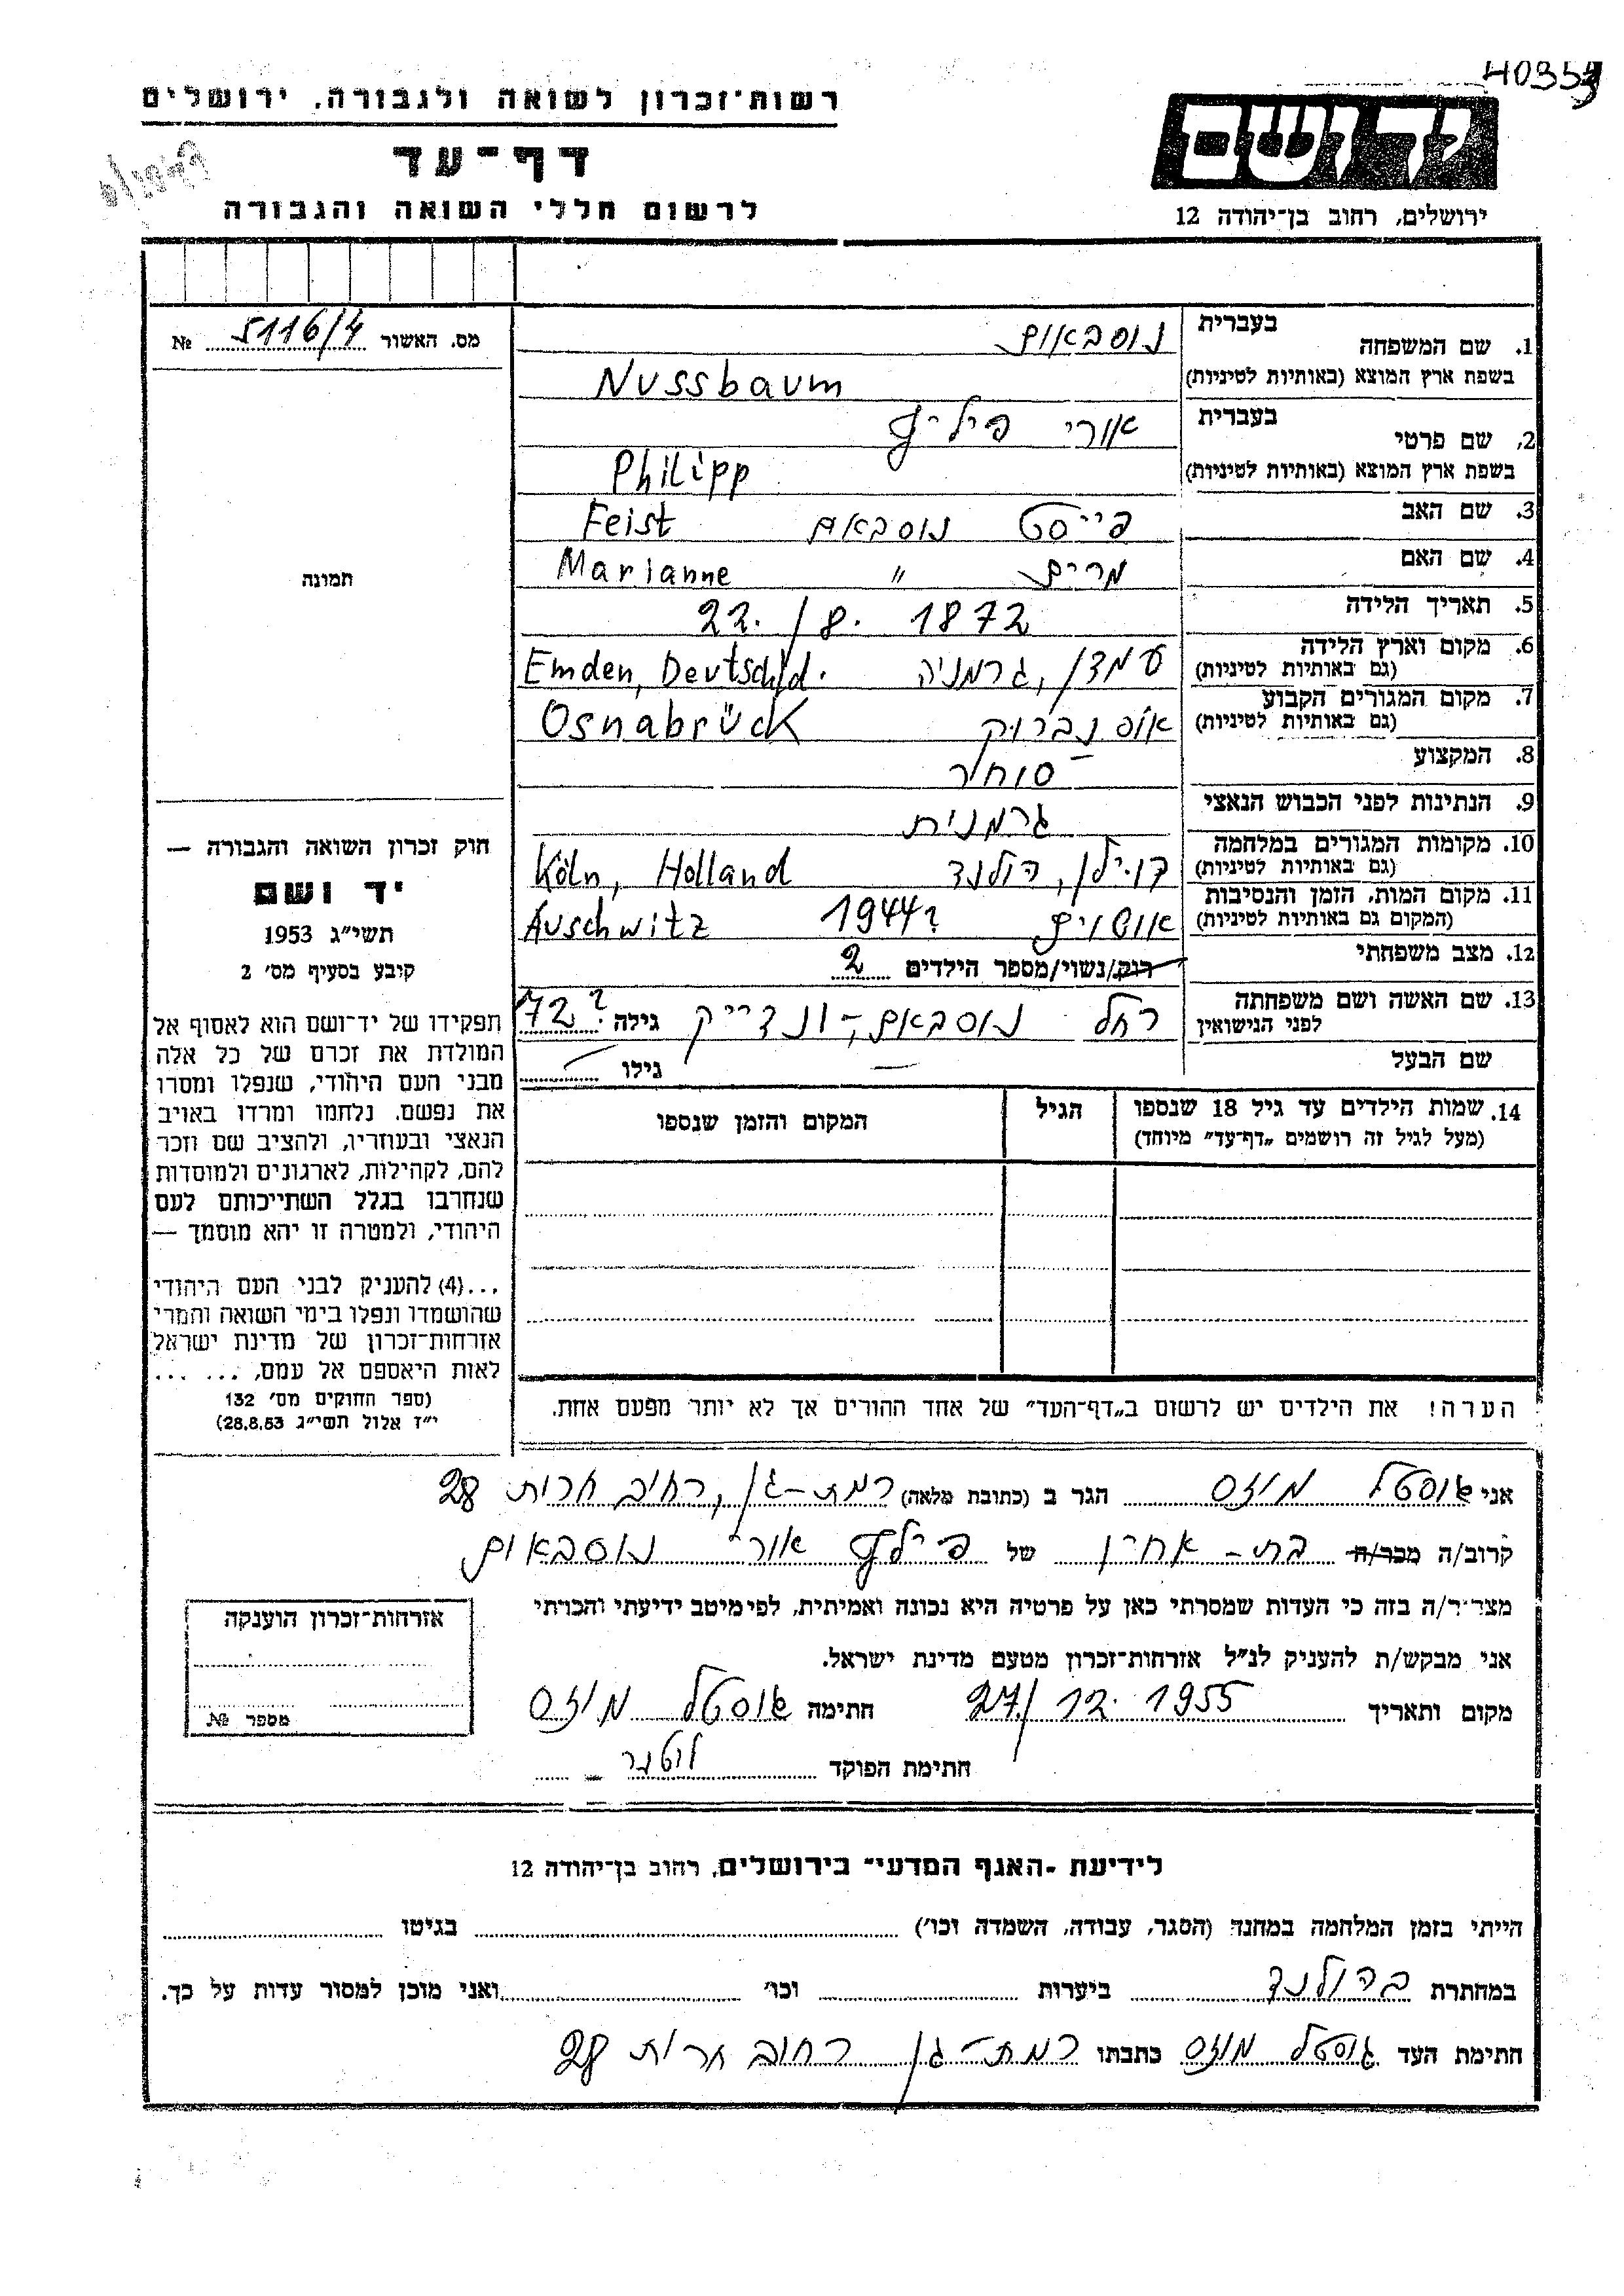 40353
רשות־זכרון לשואה ולגבורה, ירושלים
דף־עד
לרשום חללי השואה והגבורה
יד ושם
ירושלים, רחוב בן־יהודה 12
מס. האשור 5116/4 №
תמונה
חוק זכרון השואה והגבורה —
יד ושם
תשי״ג 1953
קובע בסעיף מס׳ 2
תפקידו של יד־ושם הוא לאסוף אל
המולדת את זכרם של כל אלה
מבני העם היהודי, שנפלו ומסרו
את נפשם, נלחמו ומרדו באויב
הנאצי ובעוזריו, ולהציב שם וזכר
להם, לקהילות, לארגונים ולמוסדות
שנחרבו בגלל השתייכותם לעם
היהודי, ולמטרה זו יהא מוסמך —
...(4) להעניק לבני העם היהודי
שהושמדו ונפלו בימי השואה והמרי
אזרחות־זכרון של מדינת ישראל
לאות היאספם אל עמם, ... ...
(ספר החוקים מס׳ 132
י״ז אלול תשי״ג 28.8.53)
1. שם המשפחה בעברית נוסבאום
בשפת ארץ המוצא (באותיות לטיניות) Nussbaum
2. שם פרטי בעברית אורי פיליפ
בשפת ארץ המוצא (באותיות לטיניות) Philipp
3. שם האב פייסט נוסבאום Feist
4. שם האם מרים ״ Marianne
5. תאריך הלידה 22./8. 1872
6. מקום וארץ הלידה (גם באותיות לטיניות) עמדן, גרמניה Emden, Deutschld.
7. מקום המגורים הקבוע (גם באותיות לטיניות) אוסנברוק Osnabrück
8. המקצוע סוחר
9. הנתינות לפני הכבוש הנאצי גרמנית
10. מקומות המגורים במלחמה (גם באותיות לטיניות) קוילן, הולנד Köln, Holland
11. מקום המות, הזמן והנסיבות (המקום גם באותיות לטיניות) אושויץ 1944? Auschwitz
12. מצב משפחתי רווק/נשוי/מספר הילדים 2
13. שם האשה ושם משפחתה לפני הנישואין רחל נוסבאום-ונדייק גילה 72?
שם הבעל — גילו
14. שמות הילדים עד גיל 18 שנספו (מעל לגיל זה רושמים „דף־עד״ מיוחד) הגיל המקום והזמן שנספו
הערה! את הילדים יש לרשום ב„דף־העד״ של אחד ההורים אך לא יותר מפעם אחת.
אני גוסטל מוזס הגר ב (כתובת מלאה) רמת-גן, רחוב חרות 28
קרוב/ה מכר/ה בת-אחיו של פיליפ אורי נוסבאום
מצהיר/ה בזה כי העדות שמסרתי כאן על פרטיה היא נכונה ואמיתית, לפי מיטב ידיעתי והכרתי
אני מבקש/ת להעניק לנ״ל אזרחות־זכרון מטעם מדינת ישראל.
מקום ותאריך 27/12. 1955 חתימה גוסטל מוזס
חתימת הפוקד
אזרחות־זכרון הוענקה
מספר №
לידיעת „האגף המדעי״ בירושלים, רחוב בן־יהודה 12
הייתי בזמן המלחמה במחנה (הסגר, עבודה, השמדה וכו׳) בגיטו
במחתרת בהולנד ביערות וכו׳ ואני מוכן למסור עדות על כך.
חתימת העד גוסטל מוזס כתבתו רמת-גן רחוב חרות 28